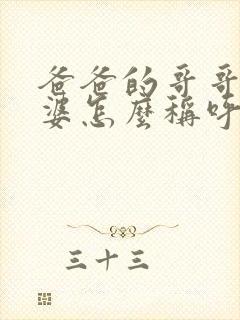 爸爸的哥哥
婆怎麼稱呼
三十三